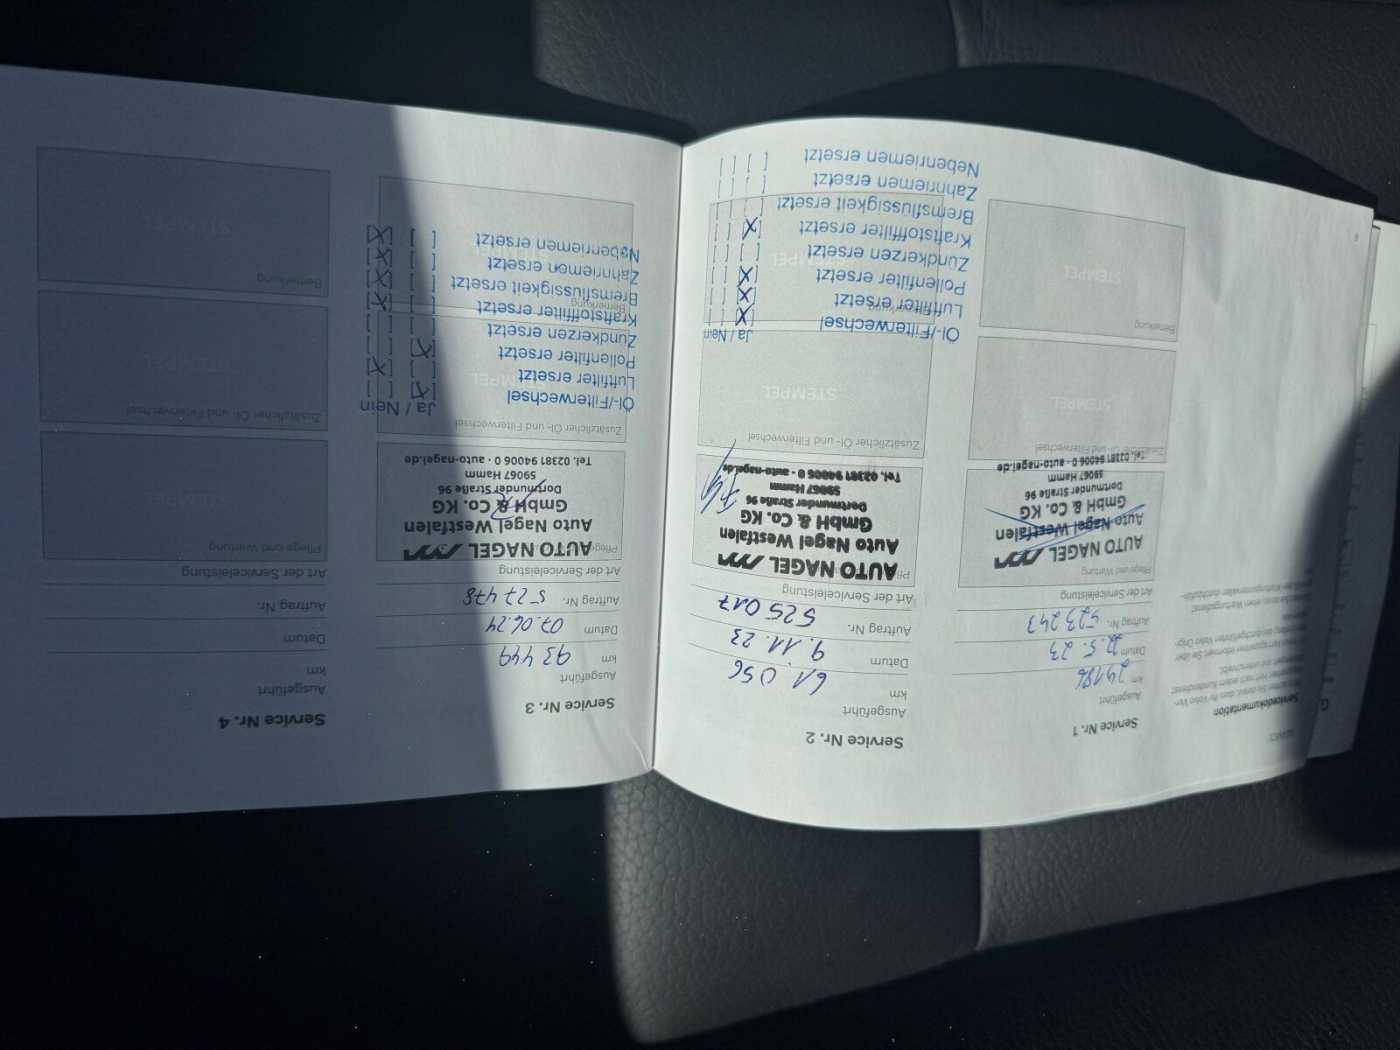 Servicedokumentation
Service Nr. 1
Ausgeführt
km
Datum 22.5.23
Auftrag Nr. 523243
Art der Serviceleistung
Pflege und Wartung
AUTO NAGEL
Auto Nagel Westfalen
GmbH & Co. KG
Dortmunder Straße 96
59067 Hamm
Tel. 02381 94006 0 · auto-nagel.de
Zusätzlicher Öl- und Filterwechsel
STEMPEL
Bemerkung
STEMPEL
Service Nr. 2
Ausgeführt
km 61.056
Datum 9.11.23
Auftrag Nr. 525017
Art der Serviceleistung
AUTO NAGEL
Auto Nagel Westfalen
GmbH & Co. KG
Dortmunder Straße 96
59067 Hamm
Tel. 02381 94006 0 · auto-nagel.de
Zusätzlicher Öl- und Filterwechsel
STEMPEL
Ja / Nein
Öl-/Filterwechsel [X] [ ]
Luftfilter ersetzt [X] [ ]
Pollenfilter ersetzt [X] [ ]
Zündkerzen ersetzt [ ] [ ]
Kraftstofffilter ersetzt [X] [ ]
Bremsflüssigkeit ersetzt [ ] [ ]
Zahnriemen ersetzt [ ] [ ]
Nebenriemen ersetzt [ ] [ ]
STEMPEL
Service Nr. 3
Ausgeführt
km 93449
Datum 07.06.24
Auftrag Nr. 527478
Art der Serviceleistung
AUTO NAGEL
Auto Nagel Westfalen
GmbH & Co. KG
Dortmunder Straße 96
59067 Hamm
Tel. 02381 94006 0 · auto-nagel.de
Zusätzlicher Öl- und Filterwechsel
Ja / Nein
Öl-/Filterwechsel [X] [ ]
Luftfilter ersetzt [ ] [X]
Pollenfilter ersetzt [X] [ ]
Zündkerzen ersetzt [ ] [ ]
Kraftstofffilter ersetzt [ ] [X]
Bremsflüssigkeit ersetzt [ ] [X]
Zahnriemen ersetzt [ ] [X]
Nebenriemen ersetzt [ ] [X]
STEMPEL
Bemerkung
Service Nr. 4
Ausgeführt
km
Datum
Auftrag Nr.
Art der Serviceleistung
Pflege und Wartung
STEMPEL
Zusätzlicher Öl- und Filterwechsel
STEMPEL
Bemerkung
STEMPEL